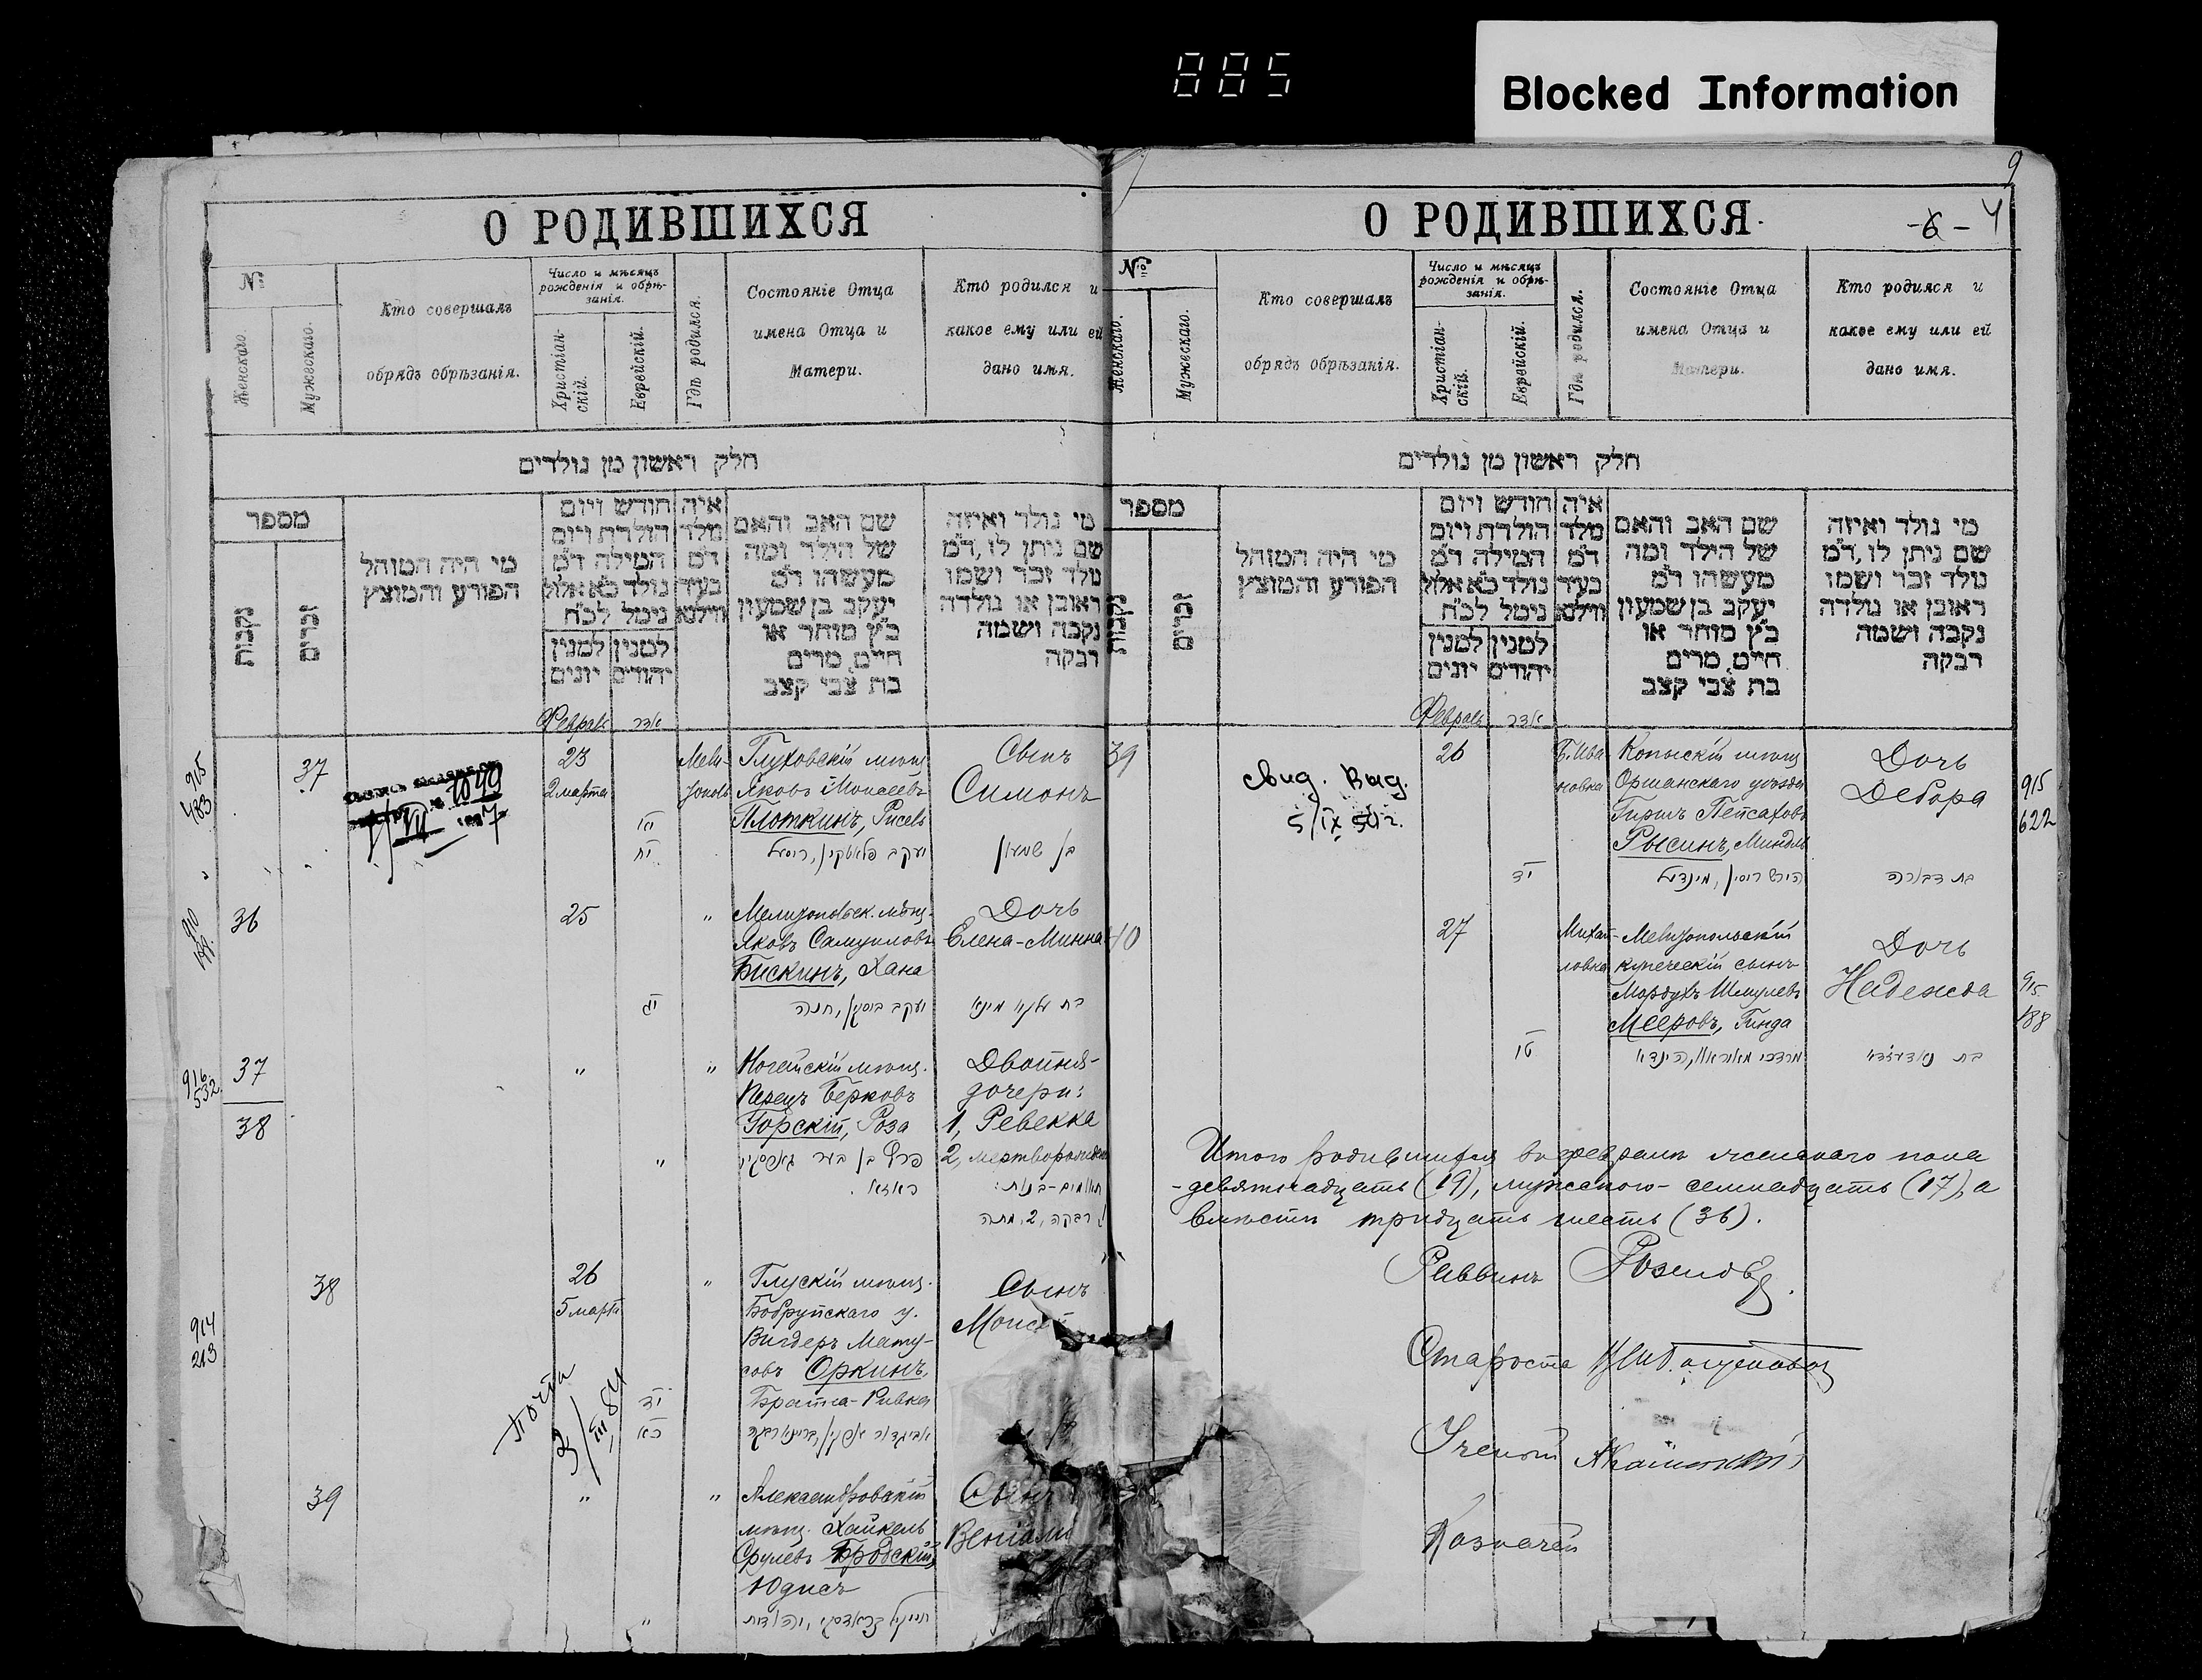 885
Blocked Information
О РОДИВШИХСЯ
№
Женскаго.
Мужескаго.
Кто совершалъ
обрядъ обрѣзанія.
Число и мѣсяцъ
рожденія и обрѣ-
занія.
Христіан-
скій.
Еврейскій.
Гдѣ родился.
Состояніе Отца
имена Отца и
Матери.
Кто родился и
какое ему или ей
дано имя.
חלק ראשון מן נולדים
מספר
נקבות
זכרים
מי היה המוהל
הפורע והמוצץ
חודש ויום
הולדת ויום
המילה ד"מ
נולד כ"א אלול
נימל לכ"ח
למנין יונים
למנין יהודים
איה
מלד
ד"מ
בעיר
ווילנא
שם האב והאם
של הילד ומה
מעשהו ד"מ
יעקב בן שמעון
כ"ץ סוחר או
חיים, מרים
בת צבי קצב
מי נולד ואיזה
שם ניתן לו, ד"מ
נולד זכר ושמו
ראובן או נולדה
נקבה ושמה
רבקה
Февраль אדר
915
483
37
1049
23
2 марта
Мели-
тополь
Глуховскій мѣщ.
Яковъ Моисеевъ
Плоткинъ, Рисель
יעקב פלאטקין, ריסעל
Сынъ
Симонъ
בן שמעון
36
25
"
Мелитопольск. мѣщ.
Яковъ Самуиловъ
Бискинъ, Хана
יעקב ביסקין, חנה
Дочь
Елена-Минна
916
532
37
38
"
"
Ногайскій мѣщ.
Перецъ Берковъ
Горскій, Роза
Двойня-
дочери:
1, Ревекка
2, мертворожден
תאומים-בנות:
רבקה, 2, מתה
914
213
38
26
5 марта
"
Глускій мѣщ.
Бобруйскаго у.
Вигдеръ Мату-
совъ Оркинъ,
Браина-Ривка
יד
כא
Сынъ
Моисей
Почта
3/III 84
39
"
"
Александровскій
мѣщ. Хайкель
Срулевъ Бродскій,
Юдисъ
Сынъ
Веніами
9
О РОДИВШИХСЯ
- 6 -
№
Женскаго.
Мужескаго.
Кто совершалъ
обрядъ обрѣзанія.
Число и мѣсяцъ
рожденія и обрѣ-
занія.
Христіан-
скій.
Еврейскій.
Гдѣ родился.
Состояніе Отца
имена Отца и
Матери.
Кто родился и
какое ему или ей
дано имя.
חלק ראשון מן נולדים
מספר
נקבות
זכרים
מי היה המוהל
הפורע והמוצץ
חודש ויום
הולדת ויום
המילה ד"מ
נולד כ"א אלול
נימל לכ"ח
למנין יונים
למנין יהודים
איה
מלד
ד"מ
בעיר
ווילנא
שם האב והאם
של הילד ומה
מעשהו ד"מ
יעקב בן שמעון
כ"ץ סוחר או
חיים, מרים
בת צבי קצב
מי נולד ואיזה
שם ניתן לו, ד"מ
נולד זכר ושמו
ראובן או נולדה
נקבה ושמה
רבקה
Февраль אדר
39
свид. выд.
5/IX 50 г.
26
Б. Ива
новка
Копыскій мѣщ.
Оршанскаго уѣзда
Гиршъ Пейсаховъ
Рысинъ, Миндль
יד
הירש ריסין, מינדעל
Дочь
Дебора
בת דבורה
915
622
40
27
Михай-
ловка
Мелитопольскій
купеческій сынъ
Мордухъ Шмулевъ
Мееровъ, Гинда
טו
Дочь
Надежда
בת נאדעזדא
915
188
Итого родившихся въ февралѣ женскаго пола
-девятнадцать (19), мужского- семнадцать (17), а
вмѣстѣ тридцать шесть (36).
Раввинъ
Староста
Ученый
Казначей